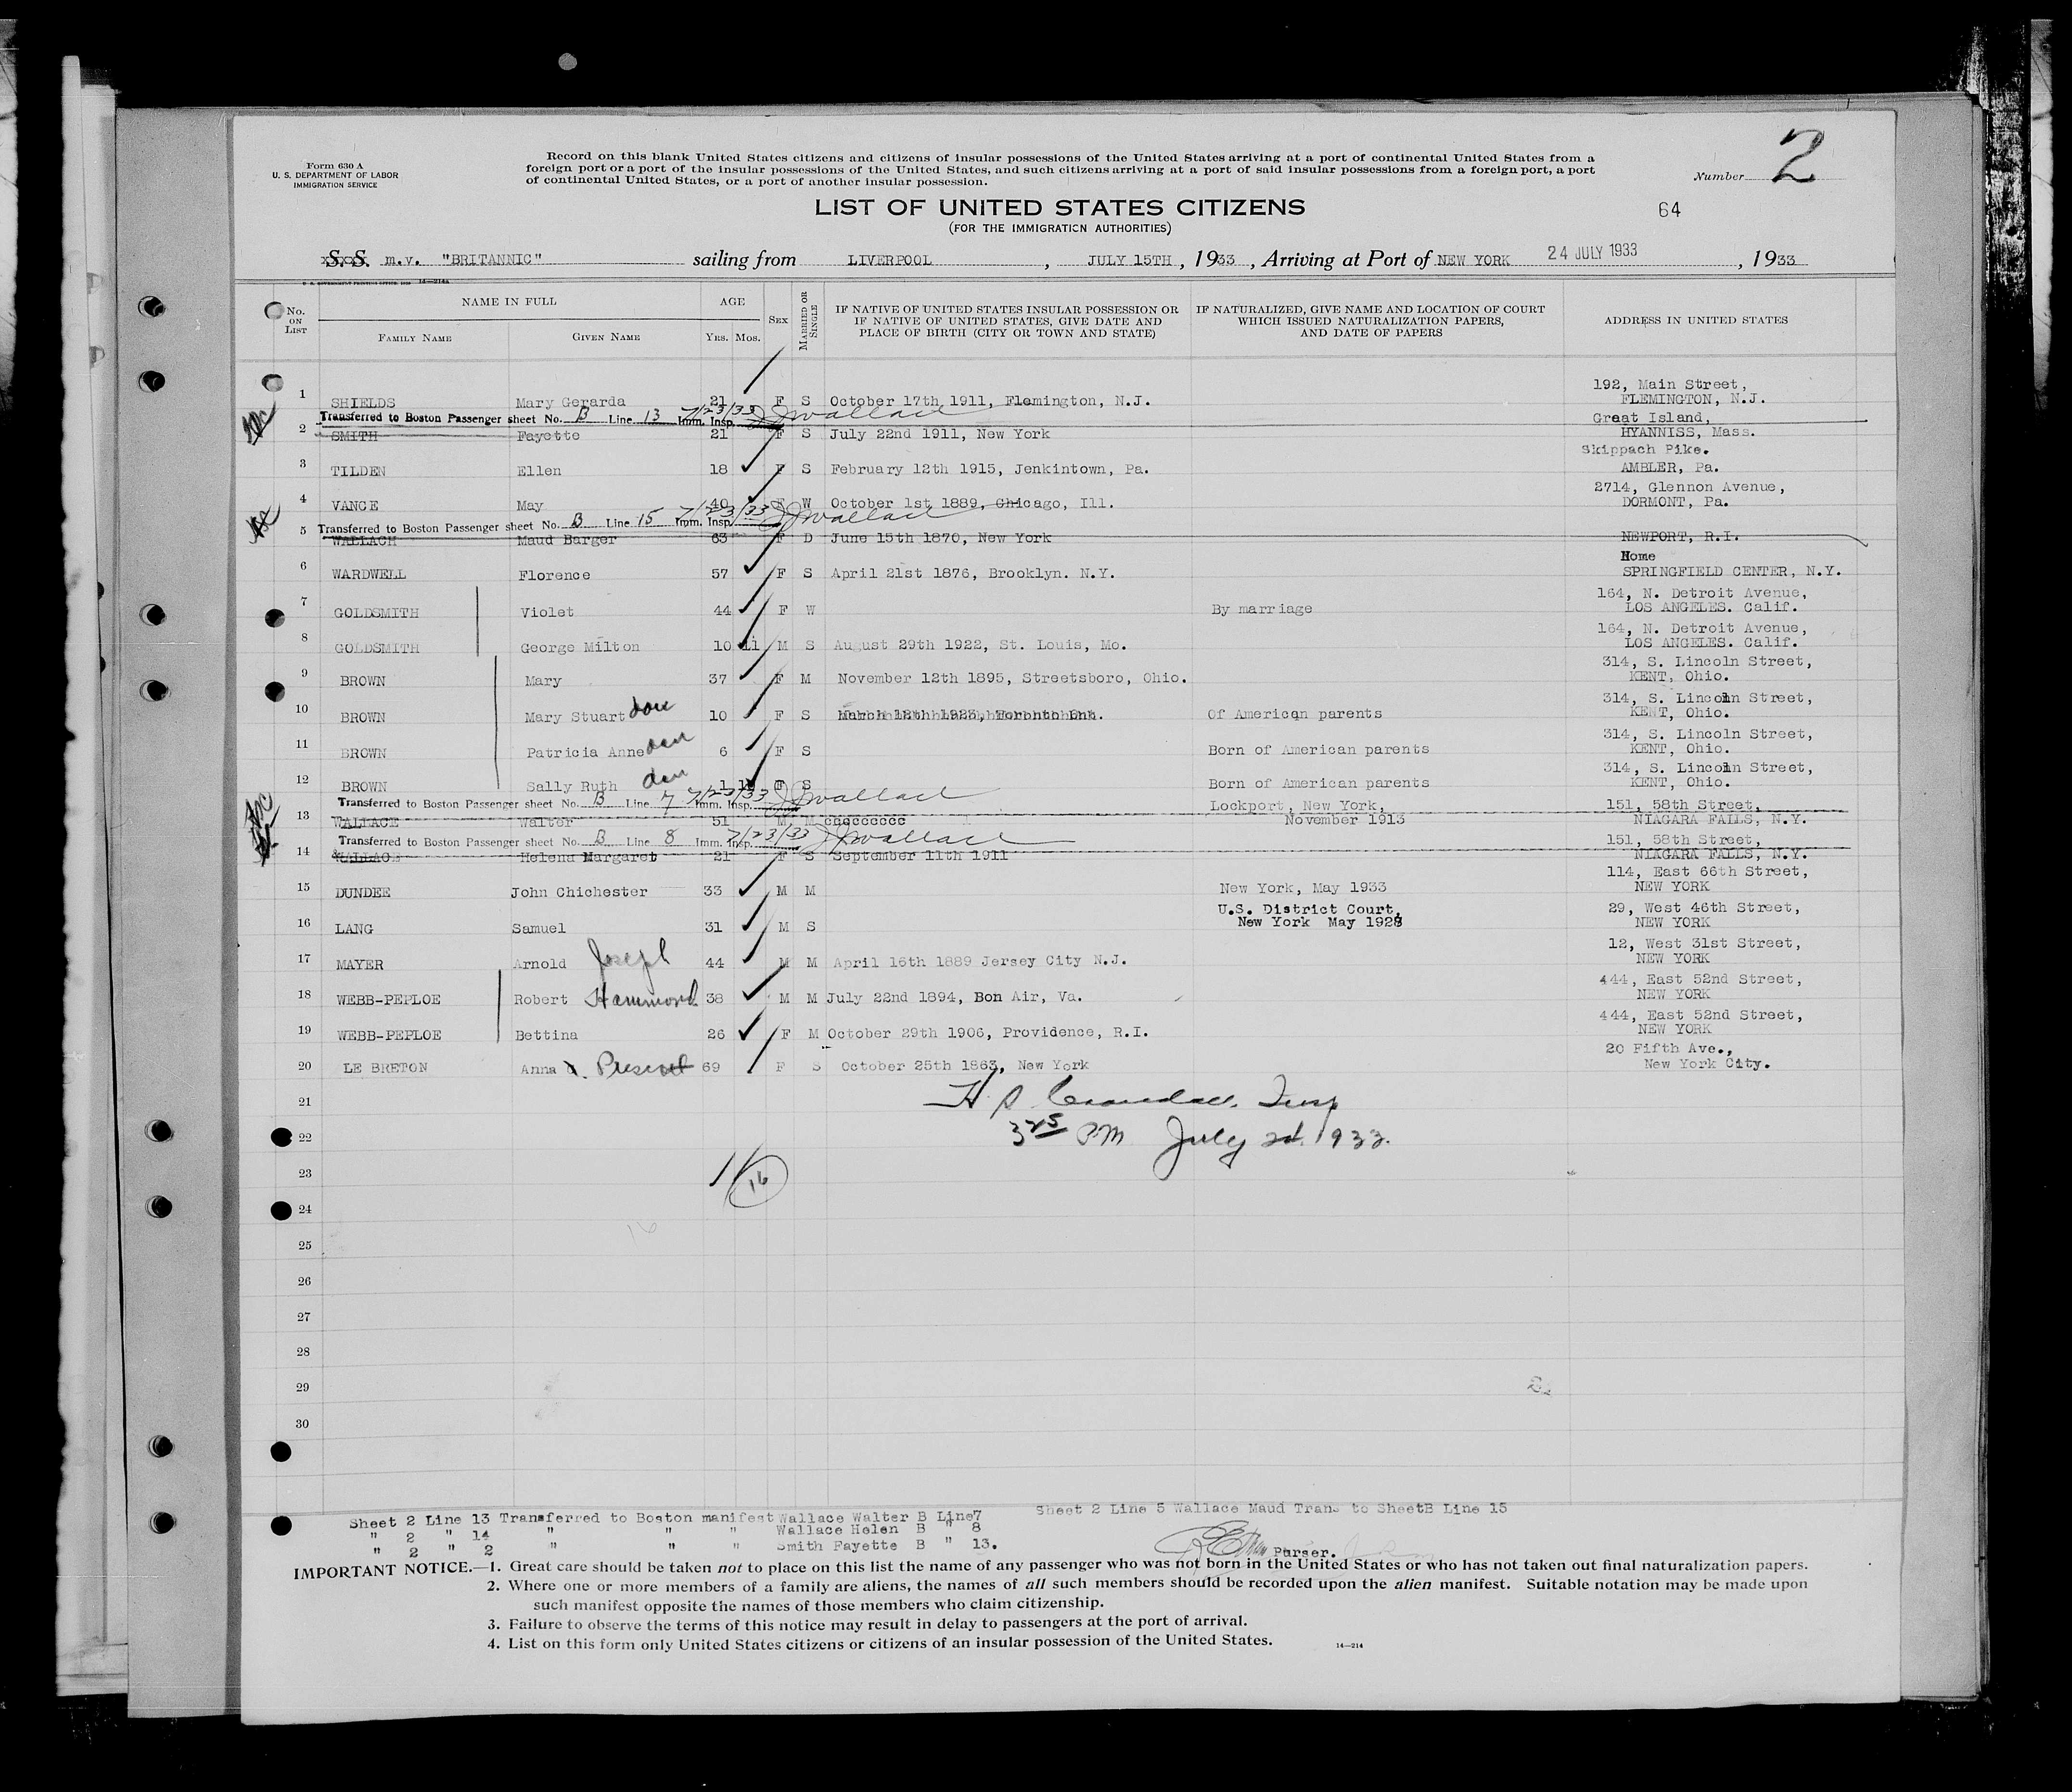 Form 630 A
U. S. DEPARTMENT OF LABOR
IMMIGRATION SERVICE
Record on this blank United States citizens and citizens of insular possessions of the United States arriving at a port of continental United States from a
foreign port or a port of the insular possessions of the United States, and such citizens arriving at a port of said insular possessions from a foreign port, a port
of continental United States, or a port of another insular possession.
Number 2
LIST OF UNITED STATES CITIZENS
64
(FOR THE IMMIGRATION AUTHORITIES)
S.S. m.v. "BRITANNIC" sailing from LIVERPOOL, JULY 15TH, 1933, Arriving at Port of NEW YORK 24 JULY 1933, 1933
No. ON LIST NAME IN FULL FAMILY NAME GIVEN NAME AGE YRS. MOS. SEX MARRIED OR SINGLE IF NATIVE OF UNITED STATES INSULAR POSSESSION OR IF NATIVE OF UNITED STATES, GIVE DATE AND PLACE OF BIRTH (CITY OR TOWN AND STATE) IF NATURALIZED, GIVE NAME AND LOCATION OF COURT WHICH ISSUED NATURALIZATION PAPERS, AND DATE OF PAPERS ADDRESS IN UNITED STATES
1 SHIELDS Mary Gerarda 21 F S October 17th 1911, Flemington, N.J. 192, Main Street, FLEMINGTON, N.J.
Transferred to Boston Passenger sheet No. B Line 13 7/23/33 Imm. Insp. J Wallace
2 SMITH Fayette 21 F S July 22nd 1911, New York Great Island, HYANNISS, Mass.
3 TILDEN Ellen 18 F S February 12th 1915, Jenkintown, Pa. Skippach Pike. AMBLER, Pa.
4 VANCE May 40 F W October 1st 1889, Chicago, Ill. 2714, Glennon Avenue, DORMONT, Pa.
Transferred to Boston Passenger sheet No. B Line 15 7/23/33 Imm. Insp. J Wallace
5 WALLACH Maud Barger 63 F D June 15th 1870, New York NEWPORT, R.I.
6 WARDWELL Florence 57 F S April 21st 1876, Brooklyn. N.Y. Home SPRINGFIELD CENTER, N.Y.
7 GOLDSMITH Violet 44 F W By marriage 164, N. Detroit Avenue, LOS ANGELES. Calif.
8 GOLDSMITH George Milton 10 11 M S August 29th 1922, St. Louis, Mo. 164, N. Detroit Avenue, LOS ANGELES. Calif.
9 BROWN Mary 37 F M November 12th 1895, Streetsboro, Ohio. 314, S. Lincoln Street, KENT, Ohio.
10 BROWN Mary Stuart 10 F S Of American parents 314, S. Lincoln Street, KENT, Ohio.
11 BROWN Patricia Anne 6 F S Born of American parents 314, S. Lincoln Street, KENT, Ohio.
12 BROWN Sally Ruth 1 F S Born of American parents 314, S. Lincoln Street, KENT, Ohio.
Transferred to Boston Passenger sheet No. B Line 7 7/23/33 Imm. Insp. J Wallace
13 WALLACE Walter 51 M M Lockport, New York, November 1913 151, 58th Street, NIAGARA FALLS, N.Y.
Transferred to Boston Passenger sheet No. B Line 8 7/23/33 Imm. Insp. J Wallace
14 WALLACE Helena Margaret 21 F S September 11th 1911 151, 58th Street, NIAGARA FALLS, N.Y.
15 DUNDEE John Chichester 33 M M New York, May 1933 114, East 66th Street, NEW YORK
16 LANG Samuel 31 M S U.S. District Court, New York May 1928 29, West 46th Street, NEW YORK
17 MAYER Arnold Joseph 44 M M April 16th 1889 Jersey City N.J. 12, West 31st Street, NEW YORK
18 WEBB-PEPLOE Robert Hammond 38 M M July 22nd 1894, Bon Air, Va. 444, East 52nd Street, NEW YORK
19 WEBB-PEPLOE Bettina 26 F M October 29th 1906, Providence, R.I. 444, East 52nd Street, NEW YORK
20 LE BRETON Anna 69 F S October 25th 1863, New York 20 Fifth Ave., New York City.
21
22 PM July 24 1933.
23 16
24
25
26
27
28
29
30
Sheet 2 Line 13 Transferred to Boston manifest Wallace Walter B Line7 Sheet 2 Line 5 Wallace Maud Trans to SheetB Line 15
" 2 " 14 " " " Wallace Helen B " 8
" 2 " 2 " " " Smith Fayette B " 13.
Purser.
IMPORTANT NOTICE.—1. Great care should be taken not to place on this list the name of any passenger who was not born in the United States or who has not taken out final naturalization papers.
2. Where one or more members of a family are aliens, the names of all such members should be recorded upon the alien manifest. Suitable notation may be made upon
such manifest opposite the names of those members who claim citizenship.
3. Failure to observe the terms of this notice may result in delay to passengers at the port of arrival.
4. List on this form only United States citizens or citizens of an insular possession of the United States. 14—214